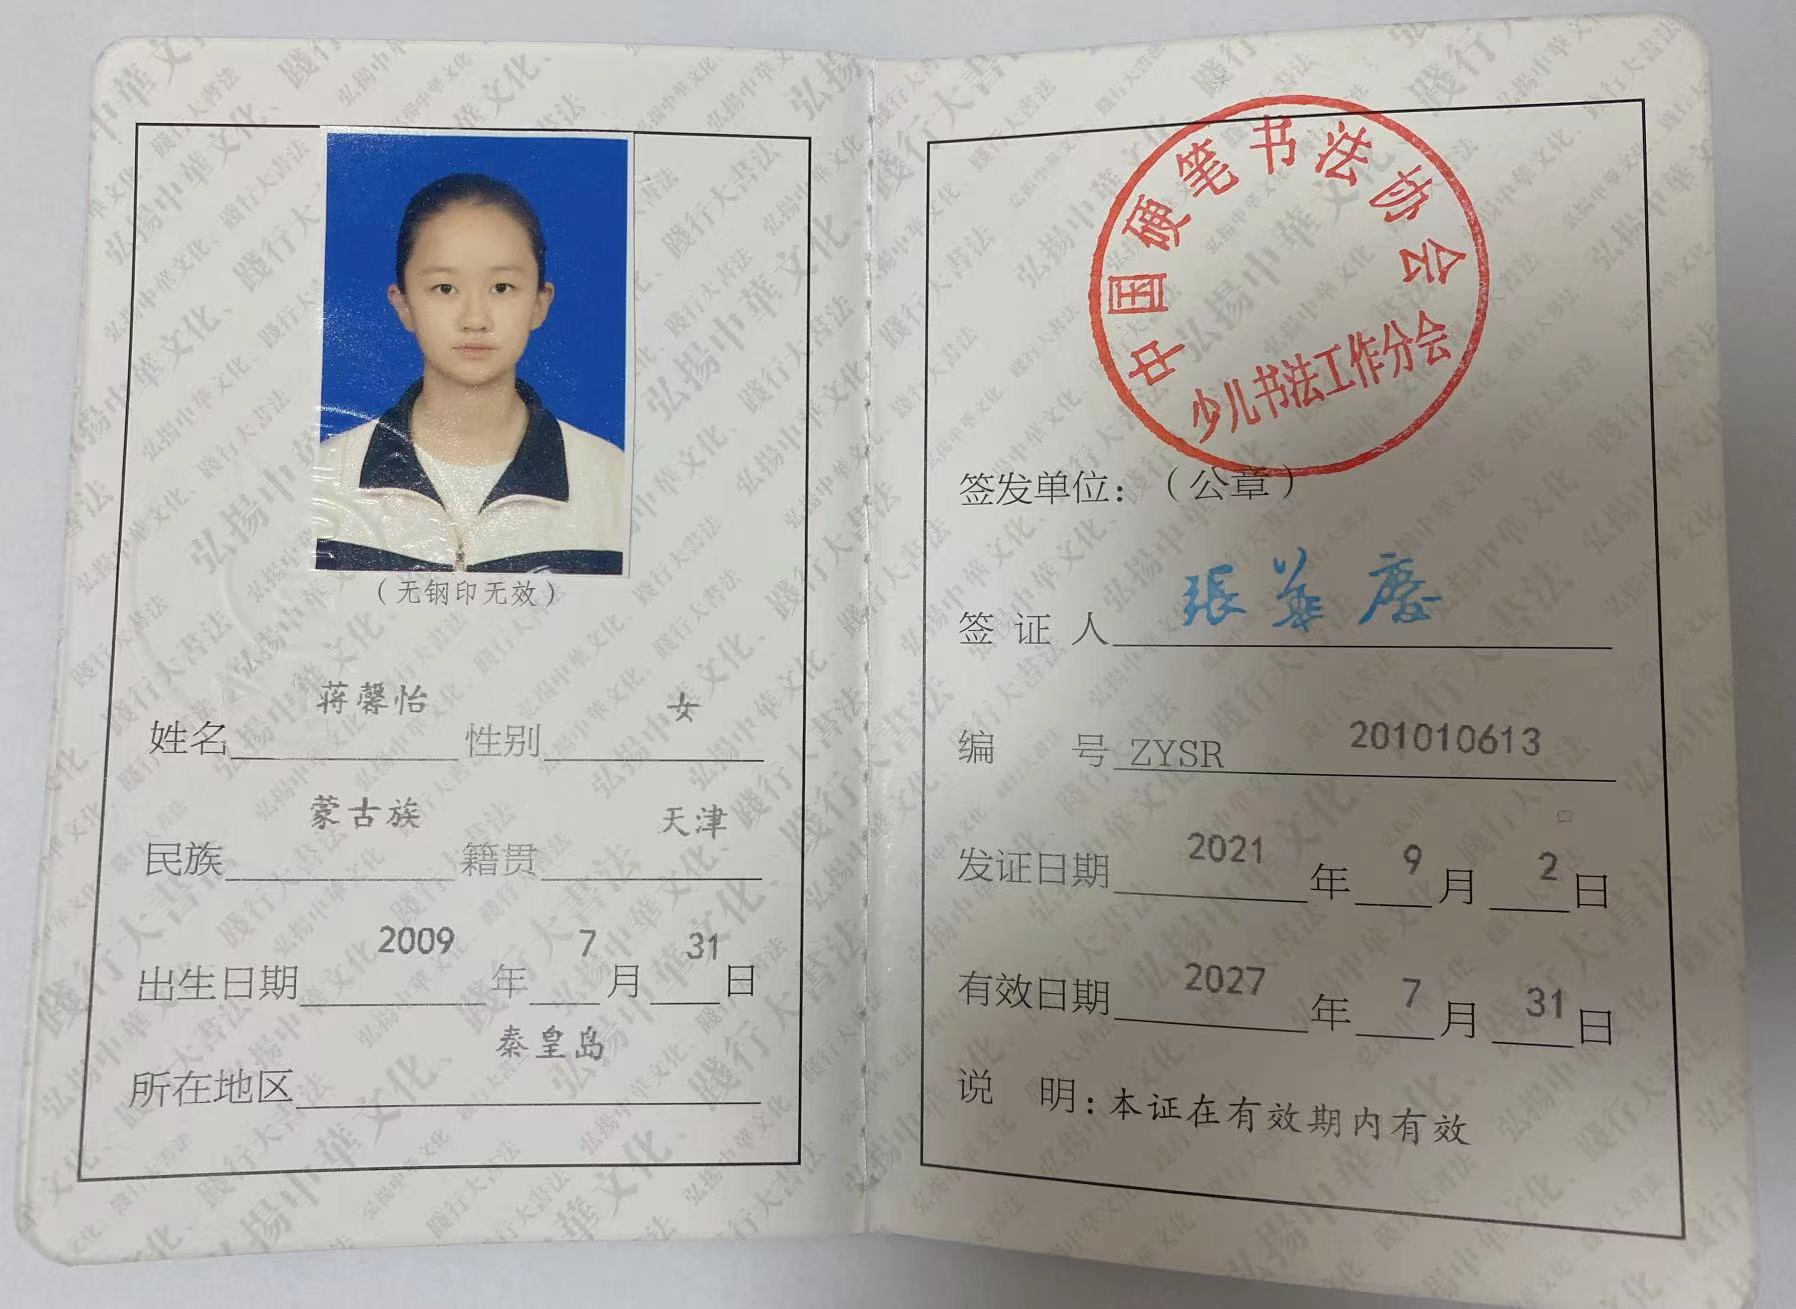 （无钢印无效）
姓名 蒋馨怡 性别 女
民族 蒙古族 籍贯 天津
出生日期 2009 年 7 月 31 日
所在地区 秦皇岛
中国硬笔书法协会
少儿书法工作分会
签发单位：（公章）
签证人 張華慶
编号 ZYSR 201010613
发证日期 2021 年 9 月 2 日
有效日期 2027 年 7 月 31 日
说明：本证在有效期内有效
弘揚中華文化、踐行大書法